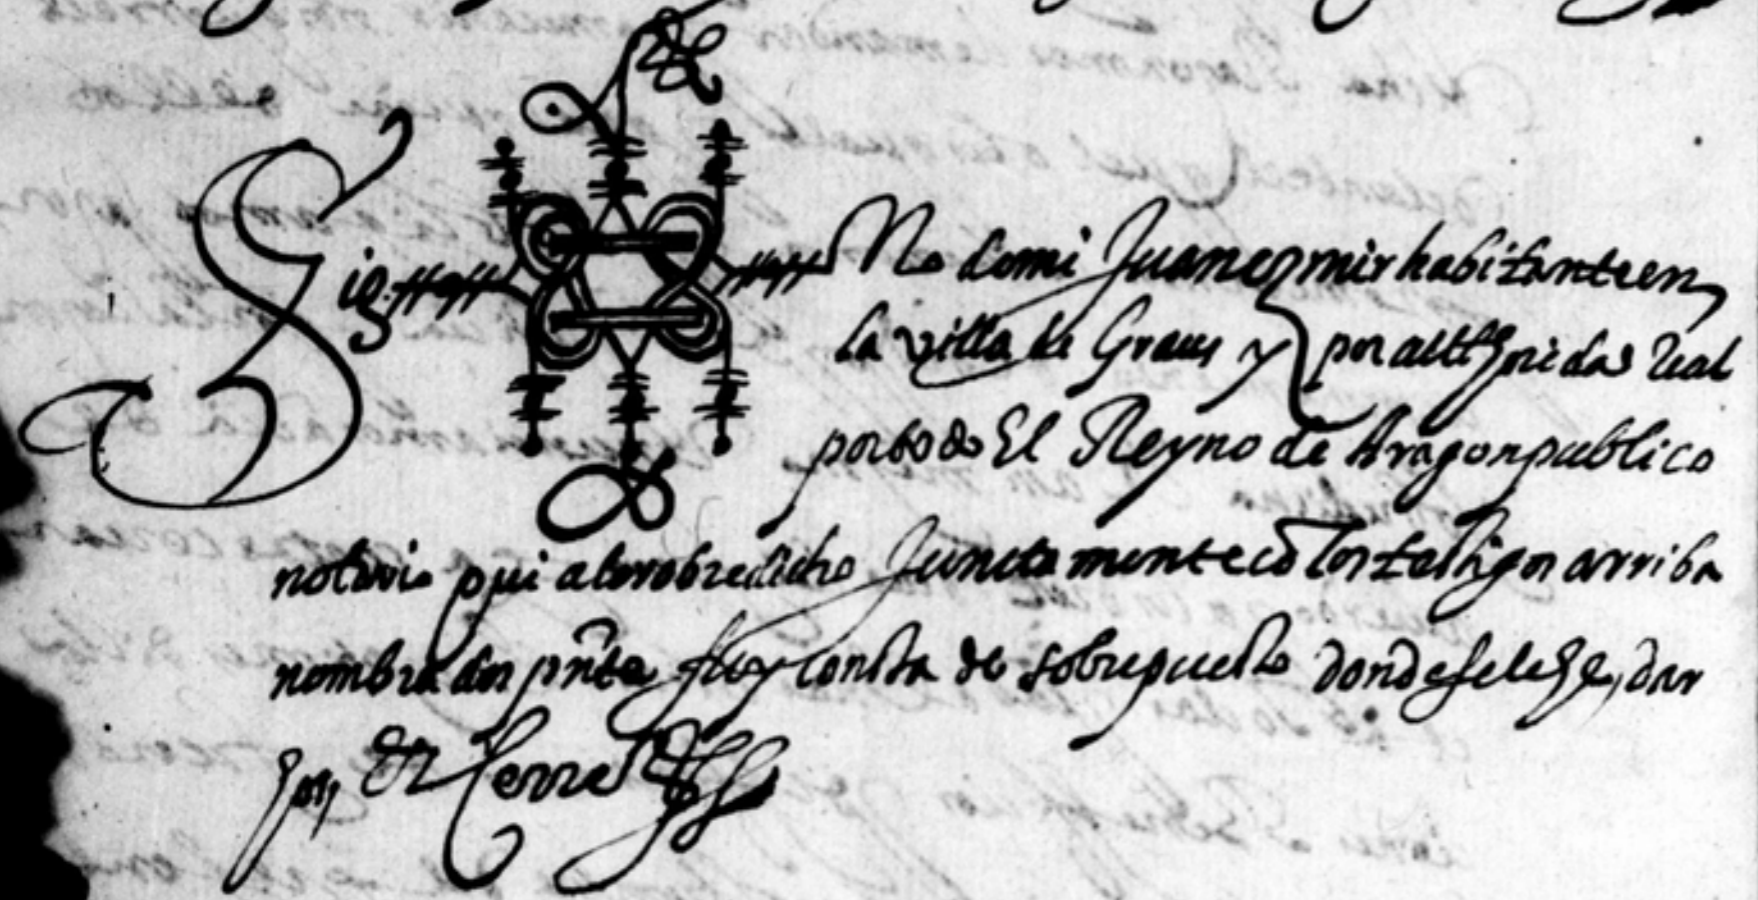 Sig No de mi Juan Esmir habitante en
la villa de Graus y por aucthoridad Real
por todo El Reyno de Aragon publico
notario qui a lo sobredicho Junctamente cõ los testigos arriba
nombrados pñte fuy consta de sobrepuesto donde se lehe, dar
et cerre